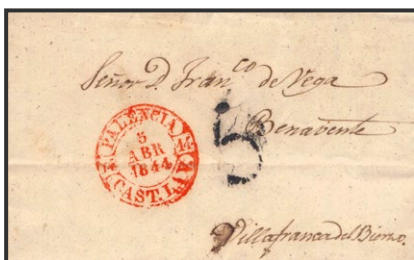 Señor D. Fran.co de Vega
Benavente
PALENCIA
5
ABR
1844
CAST. L A V.
5
Villafranca del Bierzo.